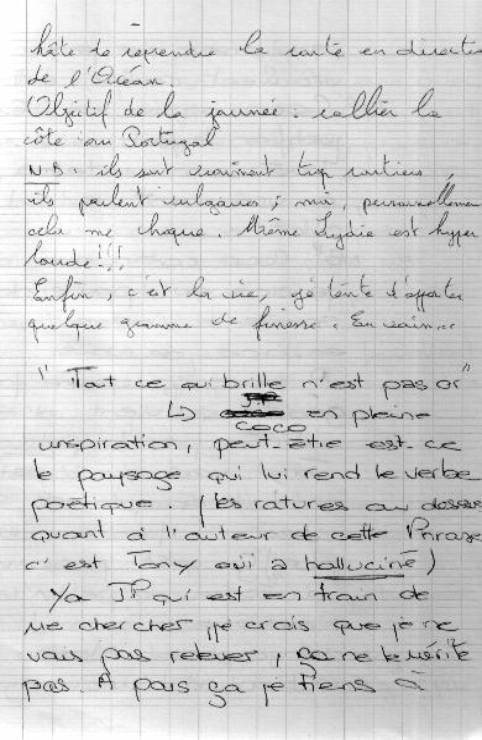 hâte de reprendre la route en directi
de l'Océan.
Objectif de la journée : rallier la
côte au Portugal
N.B. ils sont vraiment trop routiers,
ils parlent vulgaires ; moi, personnellemen
cela me choque. Même Lydie est hyper
lourde !!!
Enfin, c'est la vie, je tente d'apporter
quelque gramme de finesse. En vain...
" Tout ce qui brille n'est pas or "
↳ J.P. en pleine
coco
unspiration, peut-être est-ce
le paysage qui lui rend le verbe
poétique. (les ratures au dessus
quant à l'auteur de cette Phrase
c'est Tony qui a halluciné)
Ya JP qui est en train de
me chercher, je crois que je ne
vais pas relever, ça ne le mérite
pas. A pars ça je tiens à